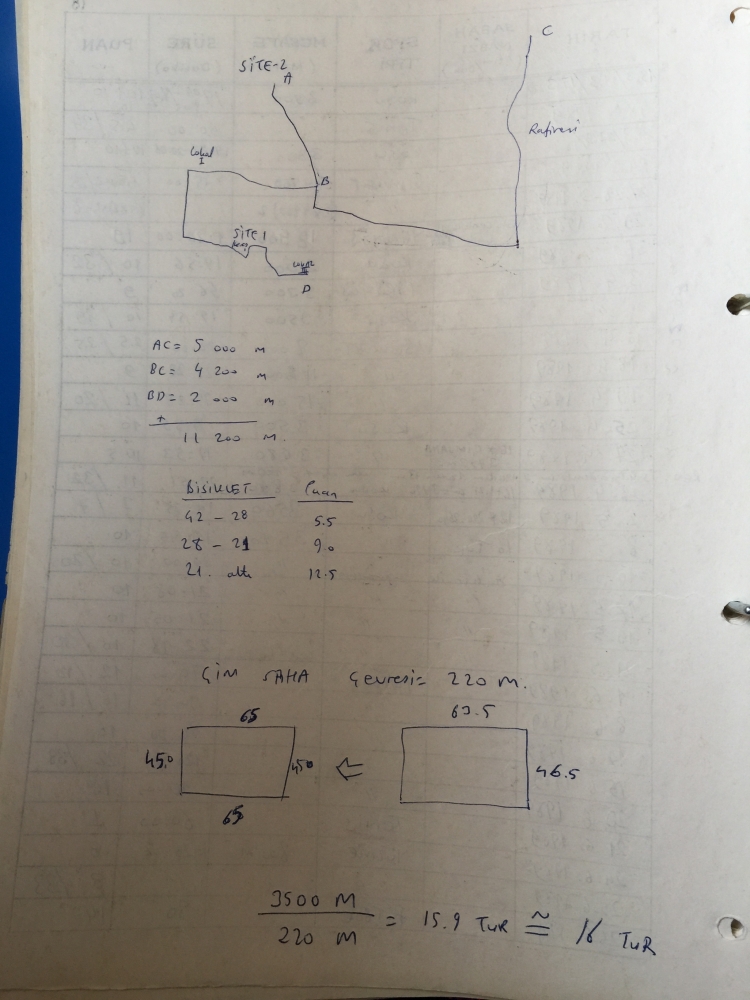 C
SİTE-2
A
Rafineri
Lokal
I
B
SİTE 1
Lokal
II
D
AC= 5 000 M
BC= 4 200 M
BD= 2 000 M
+
11 200 M.
BİSİKLET Puan
42 - 28 5.5
28 - 21 9.0
21. altı 12.5
ÇİM SAHA Çevresi= 220 M.
65 63.5
45.0 45.0 ⇐ 46.5
65
3500 M
220 M = 15.9 TUR ≅ 16 TUR